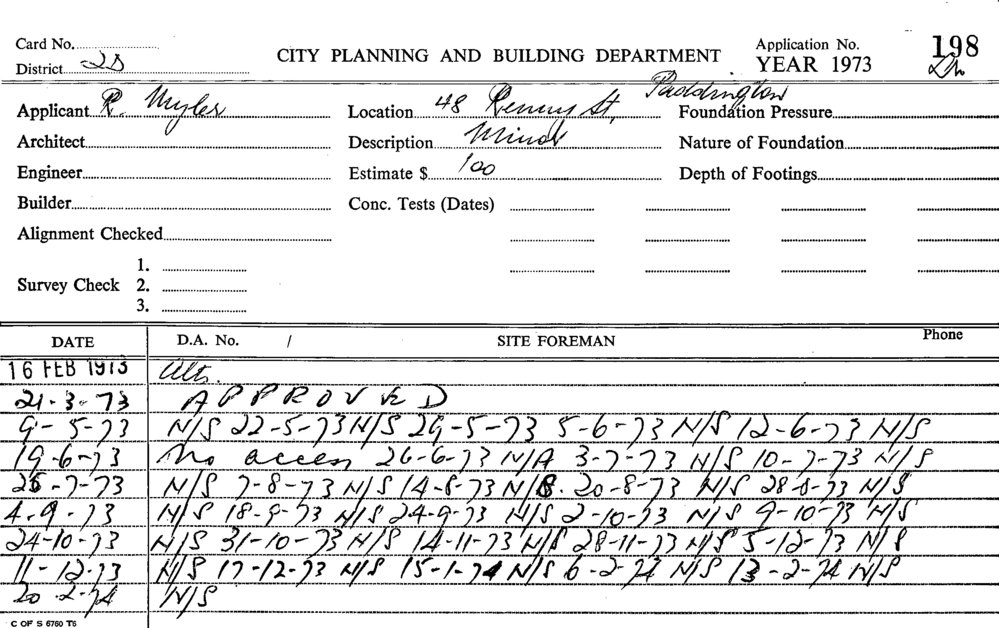 Card No.
CITY PLANNING AND BUILDING DEPARTMENT
Application No. 198
District 2D
YEAR 1973
Applicant R. Myler
Location 48 Renny St, Paddington
Foundation Pressure
Architect
Description Minor
Nature of Foundation
Engineer
Estimate $ 100
Depth of Footings
Builder
Conc. Tests (Dates)
Alignment Checked
Survey Check
1.
2.
3.
DATE D.A. No. / SITE FOREMAN Phone
16 FEB 1973 Alts.
21-3-73 APPROVED
9-5-73 N/S 22-5-73 N/S 29-5-73 5-6-73 N/S 12-6-73 N/S
19-6-73 No access 26-6-73 N/A 3-7-73 N/S 10-7-73 N/S
25-7-73 N/S 7-8-73 N/S 14-8-73 N/S. 20-8-73 N/S 28-8-73 N/S
4-9-73 N/S 18-9-73 N/S 24-9-73 N/S 2-10-73 N/S 9-10-73 N/S
24-10-73 N/S 31-10-73 N/S 14-11-73 N/S 28-11-73 N/S 5-12-73 N/S
11-12-73 N/S 17-12-73 N/S 15-1-74 N/S 6-2-74 N/S 13-2-74 N/S
20-2-74 N/S
C OF S 6760 T5